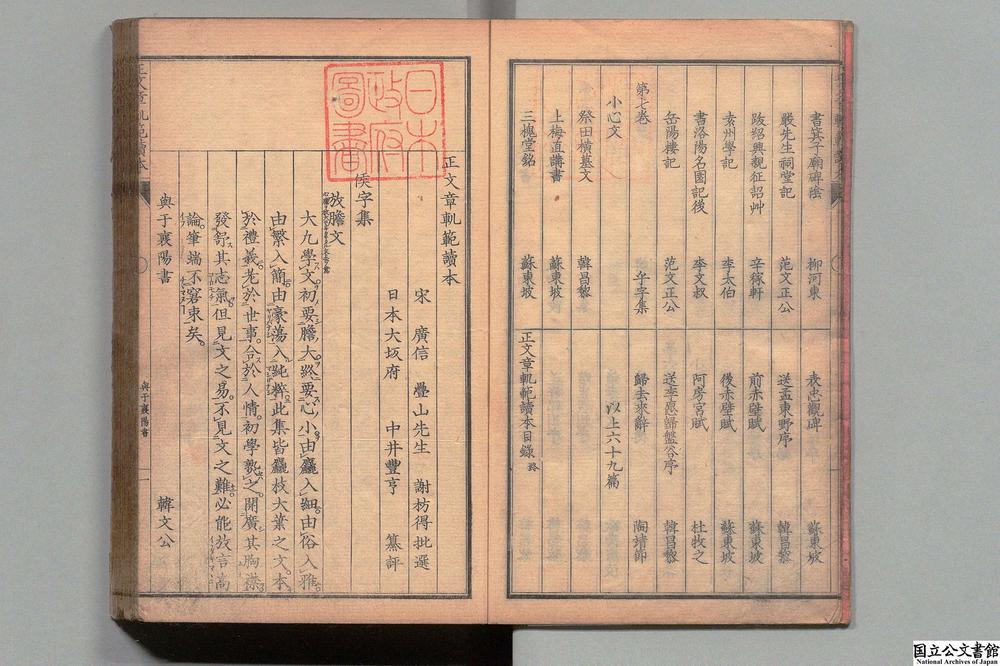 書箕子廟碑陰　柳河東
嚴先生祠堂記　范文正公
跋紹興親征詔艸　辛稼軒
袁州學記　李太伯
書洛陽名園記後　李文叔
岳陽樓記　范文正公
第七卷　乎字集
小心文
祭田橫墓文　韓昌黎
上梅直講書　蘇東坡
三槐堂銘　蘇東坡
表忠觀碑　蘇東坡
送孟東野序　韓昌黎
前赤壁賦　蘇東坡
後赤壁賦　蘇東坡
阿房宮賦　杜牧之
送李愿歸盤谷序　韓昌黎
歸去來辭　陶靖節
以上六十九篇
正文章軌範讀本目錄終
日本
政府
圖書
正文章軌範讀本
宋　廣信　疊山先生　謝枋得批選
日本大坂府　中井豐亨　纂評
侯字集
放膽文
大凡學文初要膽大終要心小由麤入細由俗入雅
由繁入簡由豪蕩入純粹此集皆麤枝大葉之文本
於禮義老於世事合於人情初學熟之開廣其胸襟
發舒其志氣但見文之易不見文之難必能放言高
論筆端不窘束矣
與于襄陽書　韓文公
與于襄陽書　一
正文章軌範讀本
国立公文書館
National Archives of Japan